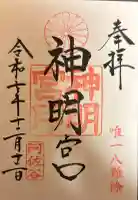 奉拝
唯一八難除
神明宮
神明宮
阿佐谷
令和六年十二月十二日